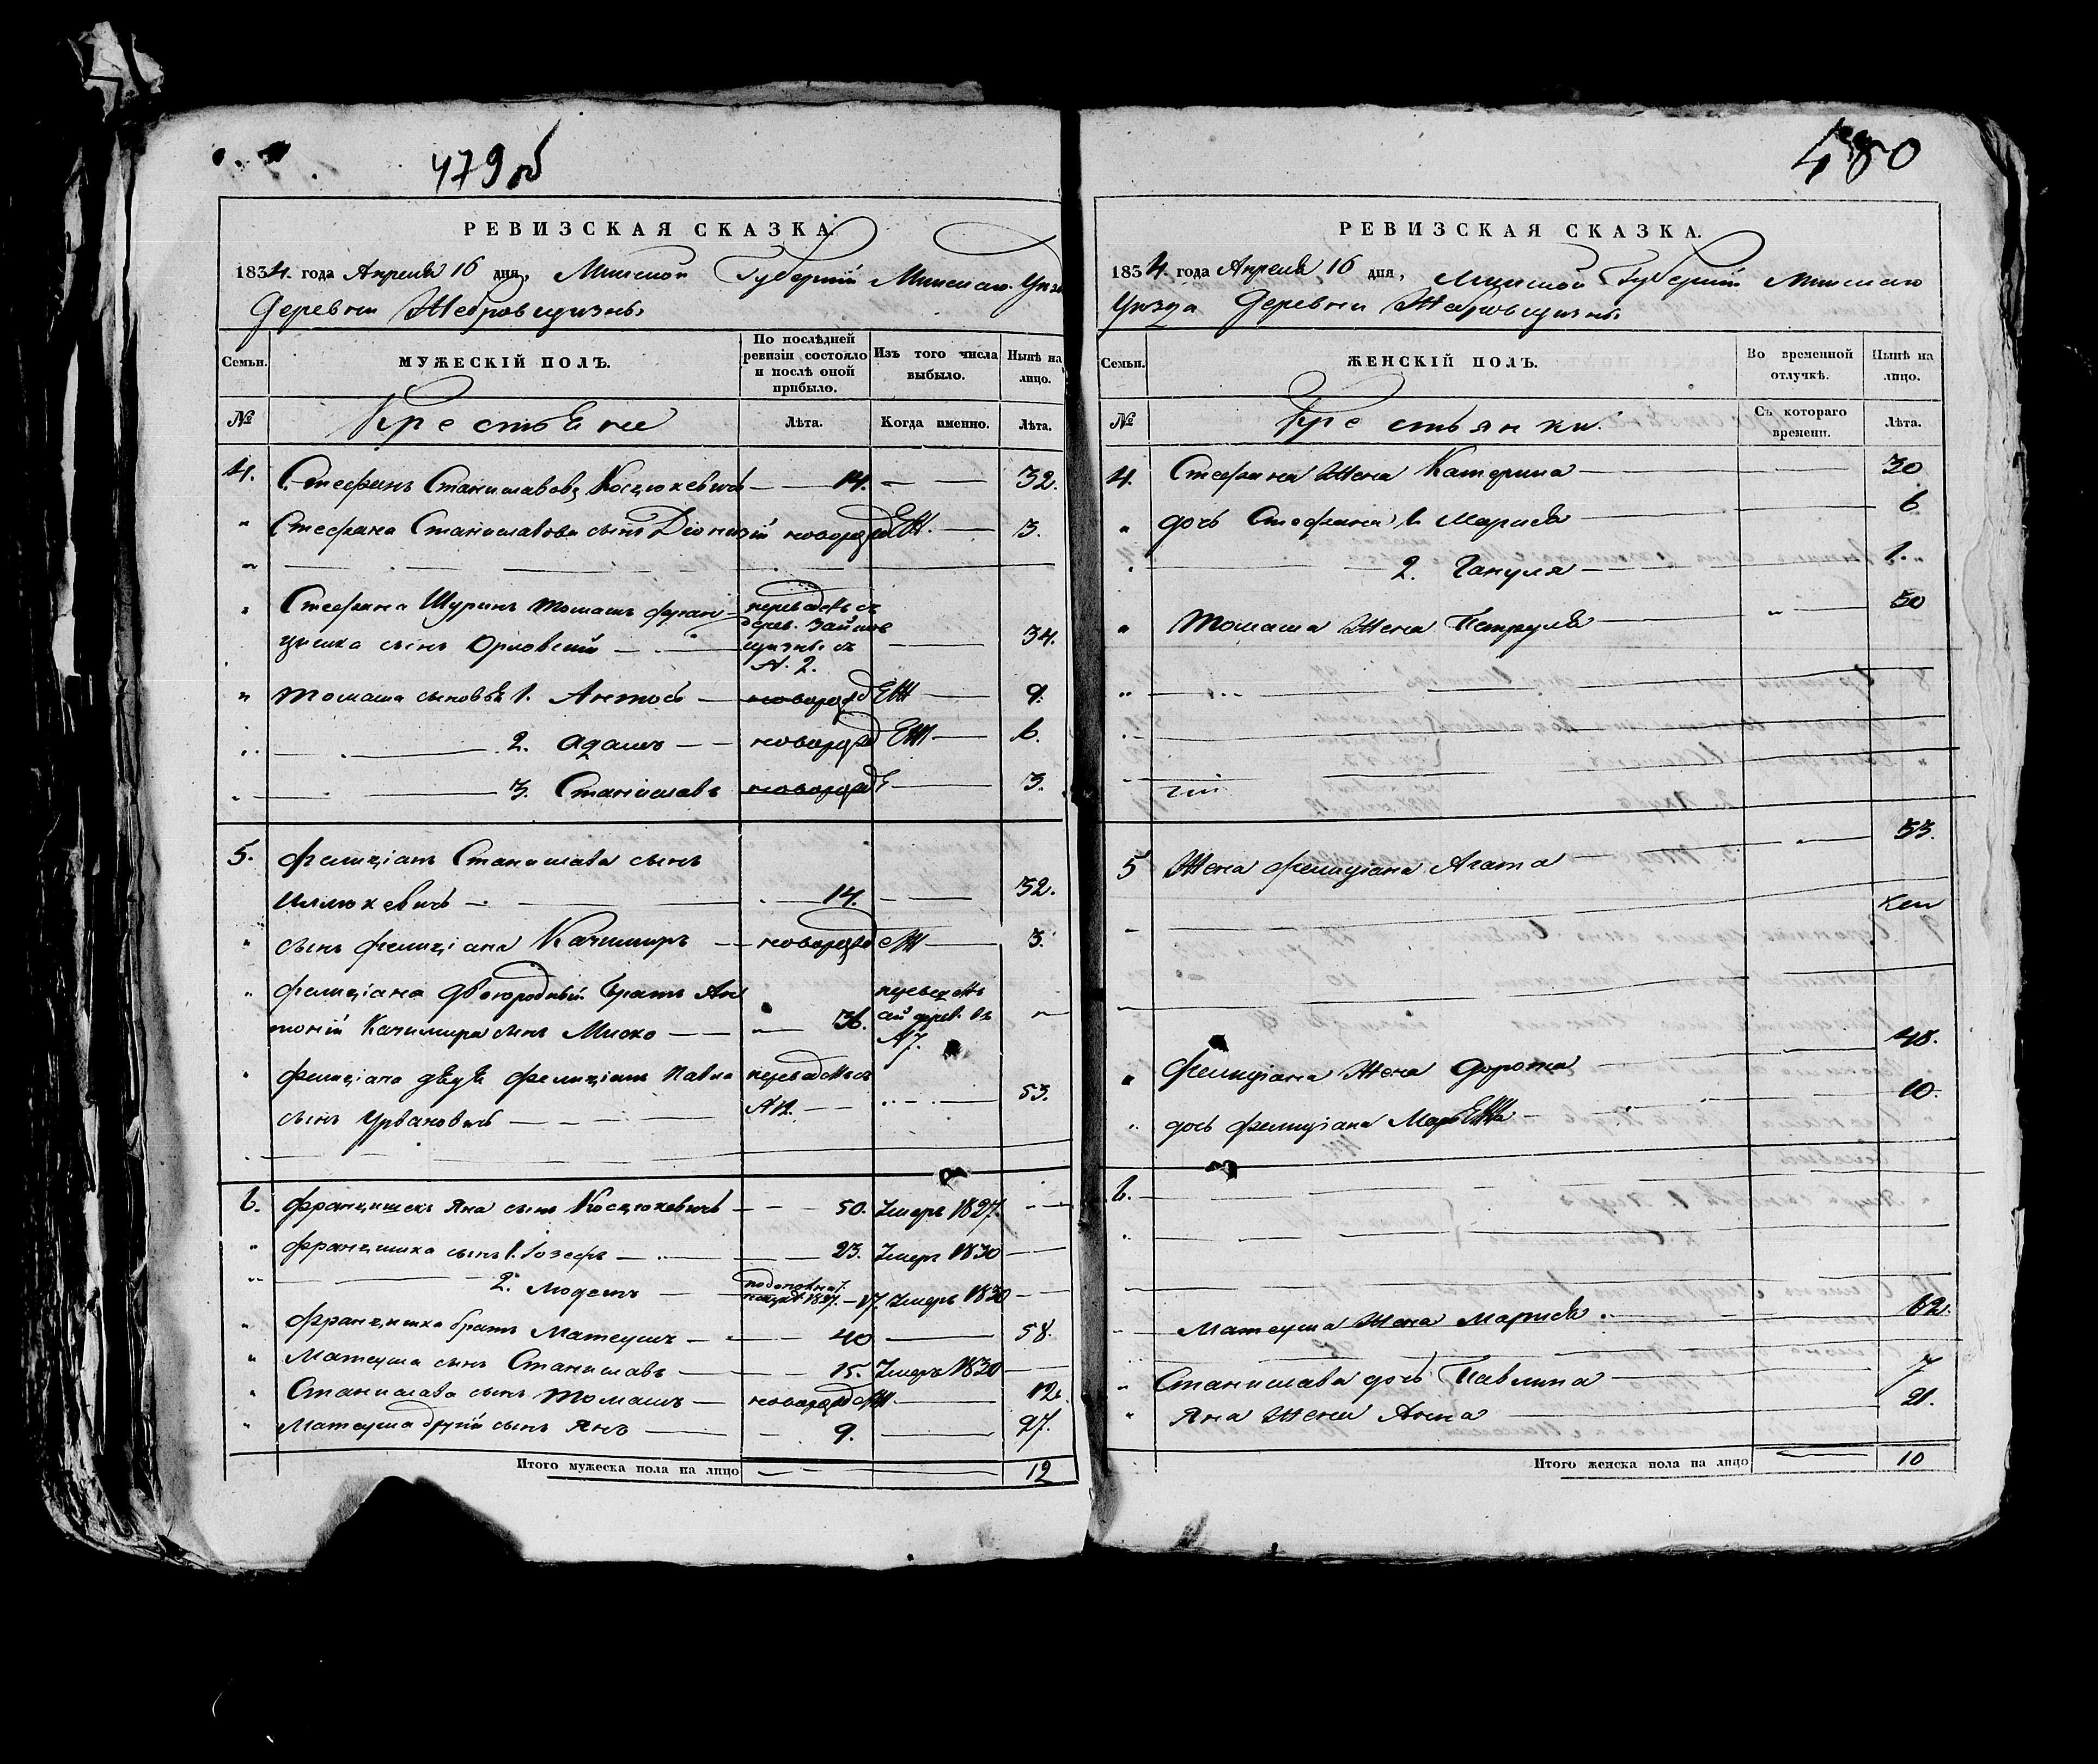 479 об
РЕВИЗСКАЯ СКАЗКА.
1834. года Апреля 16 дня, Минской Губернiи Минскаго Уез
Деревни Жебровщизны
Семьи.
МУЖЕСКIЙ ПОЛЪ.
По послѣдней ревизiи состояло и послѣ оной прибыло.
Изъ того числа выбыло.
Нынѣ на лицо.
№
Крестьяне
Лѣта.
Когда именно.
Лѣта.
4. Стефанъ Станиславовъ Косцюкевичъ 14. 32.
Стефана Станиславова сынъ Дiонизiй новорожд 3.
Стефана Шуринъ Томашъ Фран
цишка сынъ Орловскiй 34.
№ 2.
Томаша сыновья 1. Антось новорожд 9.
2. Адамъ новорожд 6.
3. Станиславъ новорожд 3.
5. Фелицiанъ Станислава сынъ
14. 32.
сынъ Фелицiана Казимиръ новорожд 3.
Фелицiана двоюродный братъ Ан
тонiй Казимира сынъ 36.
Фелицiана дядя Фелицiанъ Павла
сынъ Урбановичъ 53.
6. Францишекъ Яна сынъ Косцюкевичъ 50. Умеръ 1827.
Францишка сынъ 1. Iозефъ 23. Умеръ 1830
2. Модестъ 17. Умеръ 1830
Францишка братъ Матеушъ 40 58.
Матеуша сынъ Станиславъ 15. Умеръ 1830
Станислава сынъ Томашъ новорожд 12.
Матеуша другiй сынъ Янъ 9. 27.
Итого мужеска пола на лицо 12
480
РЕВИЗСКАЯ СКАЗКА.
1834. года Апреля 16 дня, Минской Губернiи Минскаго
Уезда Деревни Жебровщизны
Семьи.
ЖЕНСКIЙ ПОЛЪ.
Во временной отлучкѣ.
Нынѣ на лицо.
№
Крестьянки.
Съ котораго времени.
Лѣта.
4. Стефана Жена Катерина 30
дочь Стефана 1. Марiя 6
2. Гануля 1.
Томаша Жена Петруля 50
5 Жена Фелицiана Агата 33.
Фелицiана Жена Дорота 48.
дочь Фелицiана 10.
6.
Матеуша Жена Марiя 62.
Станислава дочь Павлина 7
Яна Жена Анна 21.
Итого женска пола на лицо 10